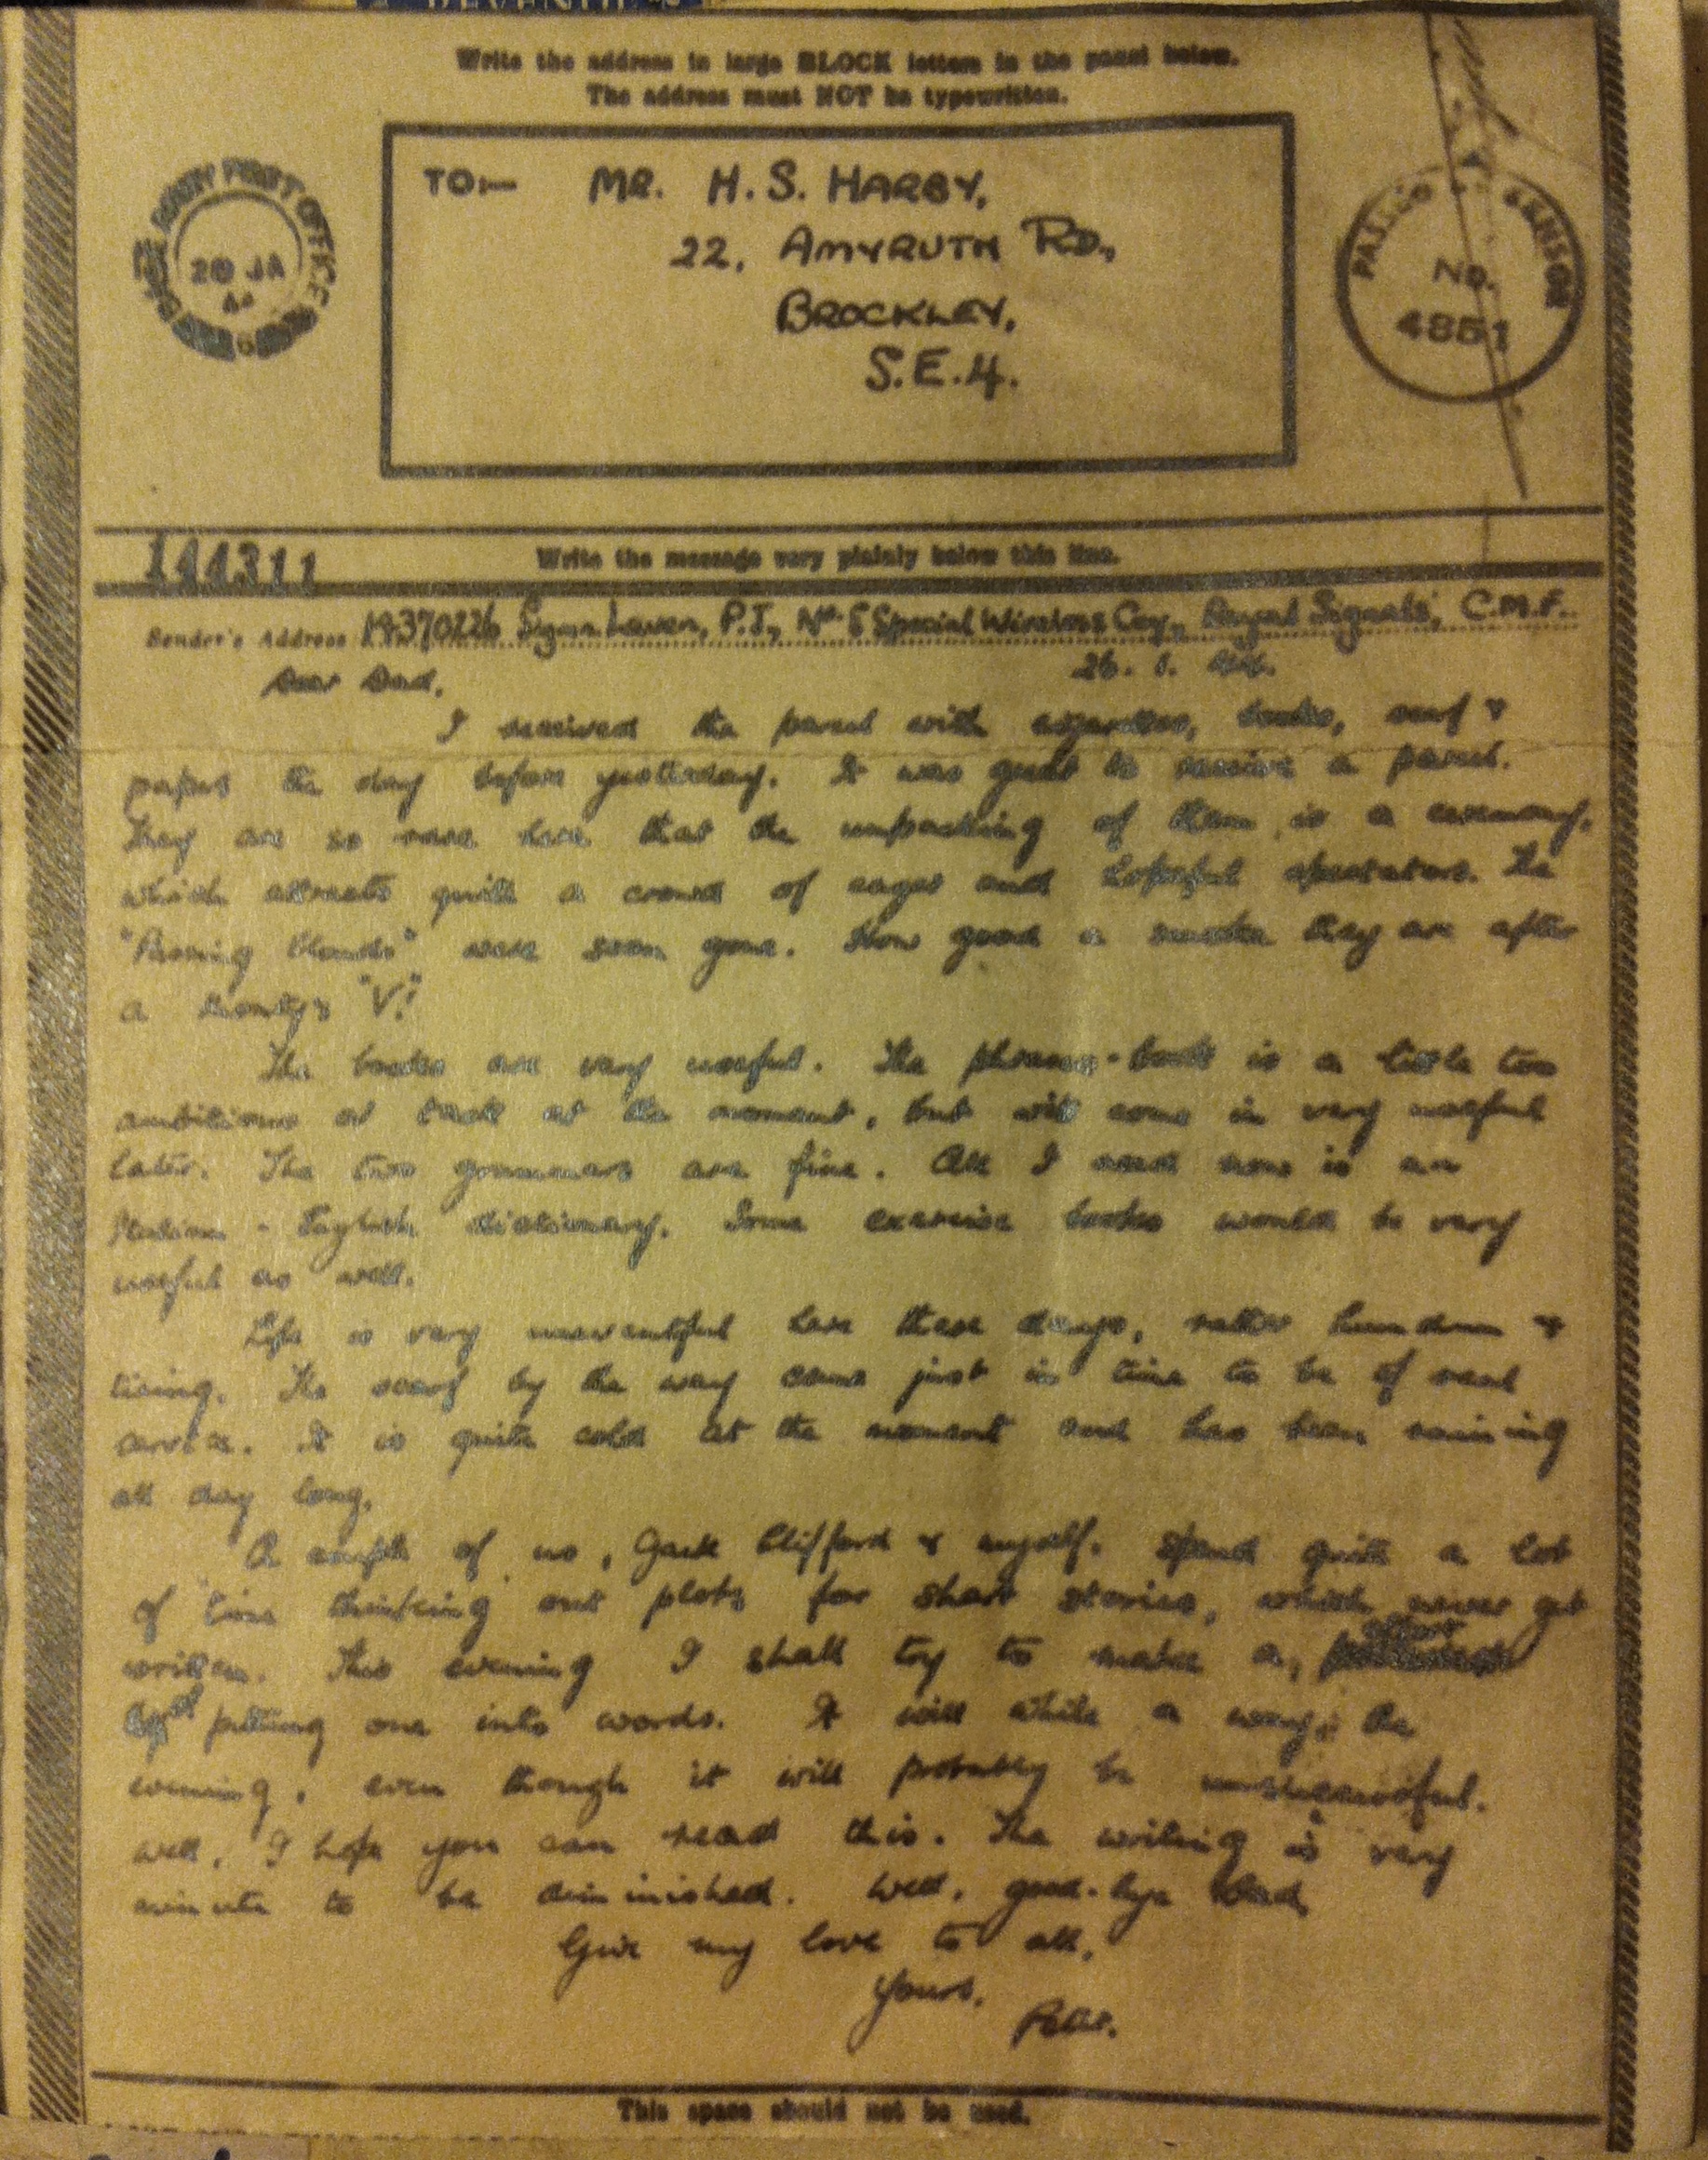 Write the address in large BLOCK letters in the panel below.
The address must NOT be typewritten.
TO:— MR. H. S. HARBY,
22, AMYRUTH RD.,
BROCKLEY,
S.E.4.
ARMY POST OFFICE
28 JA
PASSED CENSOR
No.
4851
144311
Write the message very plainly below this line.
Sender's Address Signmn. P.J., No. 5 Special Wireless Coy., Royal Signals, C.M.F.
Dear Dad,
I received the parcel with cigarettes, books, scarf &
papers the day before yesterday. It was good to receive a parcel.
They are so rare here that the unpacking of them is a ceremony,
which attracts quite a crowd of eager and hopeful spectators. The
"Passing Clouds" were soon gone. How good a smoke they are after
a "V"!
The books are very useful. The phrase-book is a little too
ambitious at the moment, but will come in very useful
later. The two grammars are fine. All I need now is an
Italian - English dictionary. Some exercise books would be very
useful as well.
Life is very uneventful here these days, rather humdrum &
tiring. The scarf by the way came just in time to be of real
service. It is quite cold at the moment and has been raining
all day long.
A couple of us, Jack Clifford & myself, spend quite a lot
of time thinking out plots for short stories, which never get
written. This evening I shall try to make an effort
at putting one into words. It will while away the
evening, even though it will probably be unsuccessful.
Well, I hope you can read this. The writing is very
minute to be diminished. Well, good-bye Dad,
Give my love to all,
Yours,
Peter.
This space should not be used.